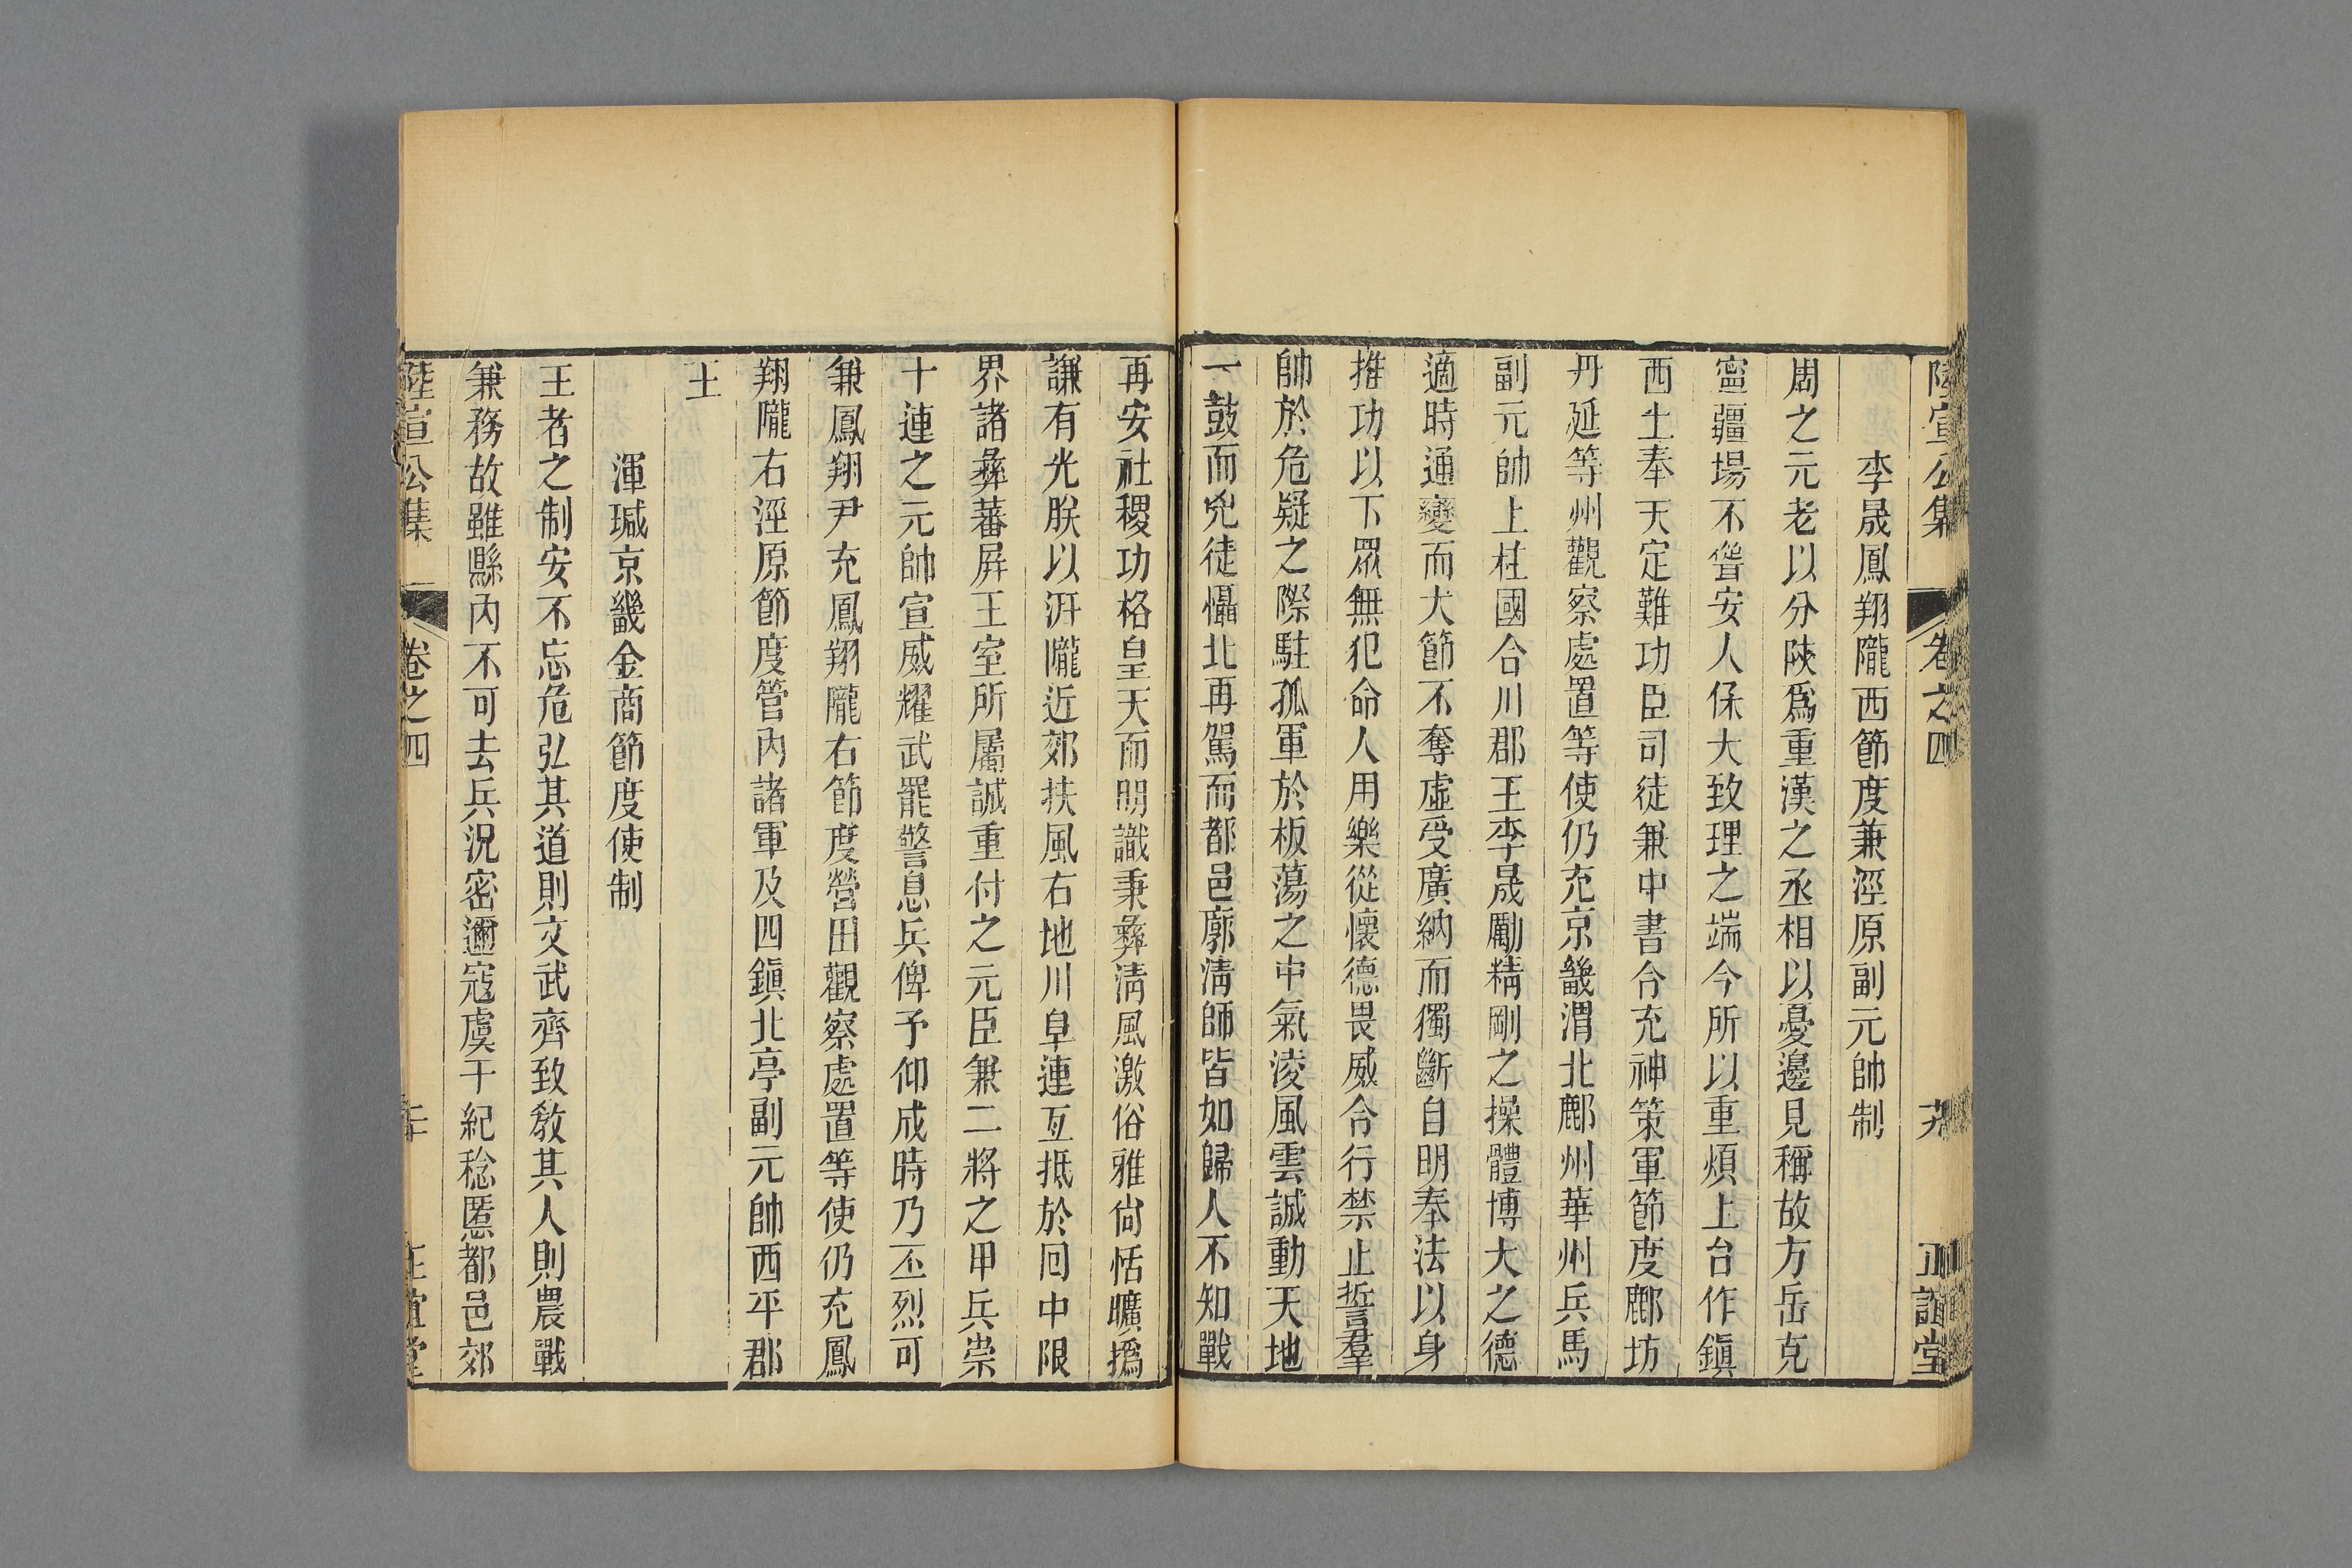 陸宣公集 卷之四 正誼堂
李晟鳳翔隴西節度兼涇原副元帥制
周之元老以分陜爲重漢之丞相以憂邊見稱故方岳克
寧疆場不聳安人保大致理之端今所以重煩上台作鎭
西土奉天定難功臣司徒兼中書令充神策軍節度鄜坊
丹延等州觀察處置等使仍充京畿渭北鄜州華州兵馬
副元帥上柱國合川郡王李晟勵精剛之操體博大之德
適時通變而大節不奪虛受廣納而獨斷自明奉法以身
推功以下眾無犯命人用樂從懷德畏威令行禁止誓羣
帥於危疑之際駐孤軍於板蕩之中氣淩風雲誠動天地
一鼓而兇徒懾北再駕而都邑廓淸師皆如歸人不知戰
再安社稷功格皇天而明識秉彝淸風激俗雅尙恬曠撝
謙有光朕以汧隴近郊扶風右地川阜連亙抵於回中限
界諸彝蕃屏王室所屬誠重付之元臣兼二將之甲兵崇
十連之元帥宣威耀武罷警息兵俾予仰成時乃丕烈可
兼鳳翔尹充鳳翔隴右節度營田觀察處置等使仍充鳳
翔隴右涇原節度管內諸軍及四鎭北亭副元帥西平郡
王
渾瑊京畿金商節度使制
王者之制安不忘危弘其道則文武齊致敎其人則農戰
兼務故雖縣內不可去兵況密邇寇虞干紀稔慝都邑郊
陸宣公集 卷之四 二十 正誼堂